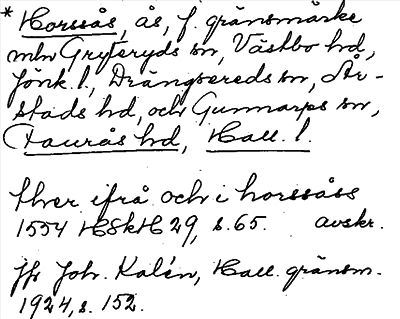 * Horssås, ås, f. gränsmärke
mln Gryteryds sn, Västbo hd,
Jönk. l., Drängsereds sn, År-
stads hd, och Gunnarps sn,
Faurås hd, Hall. l.
ther ifrå och i horssåss
1554 HSkH 29, s. 65. avskr.
Jfr Joh. Kalén, Hall. gränsm.
1924, s. 152.